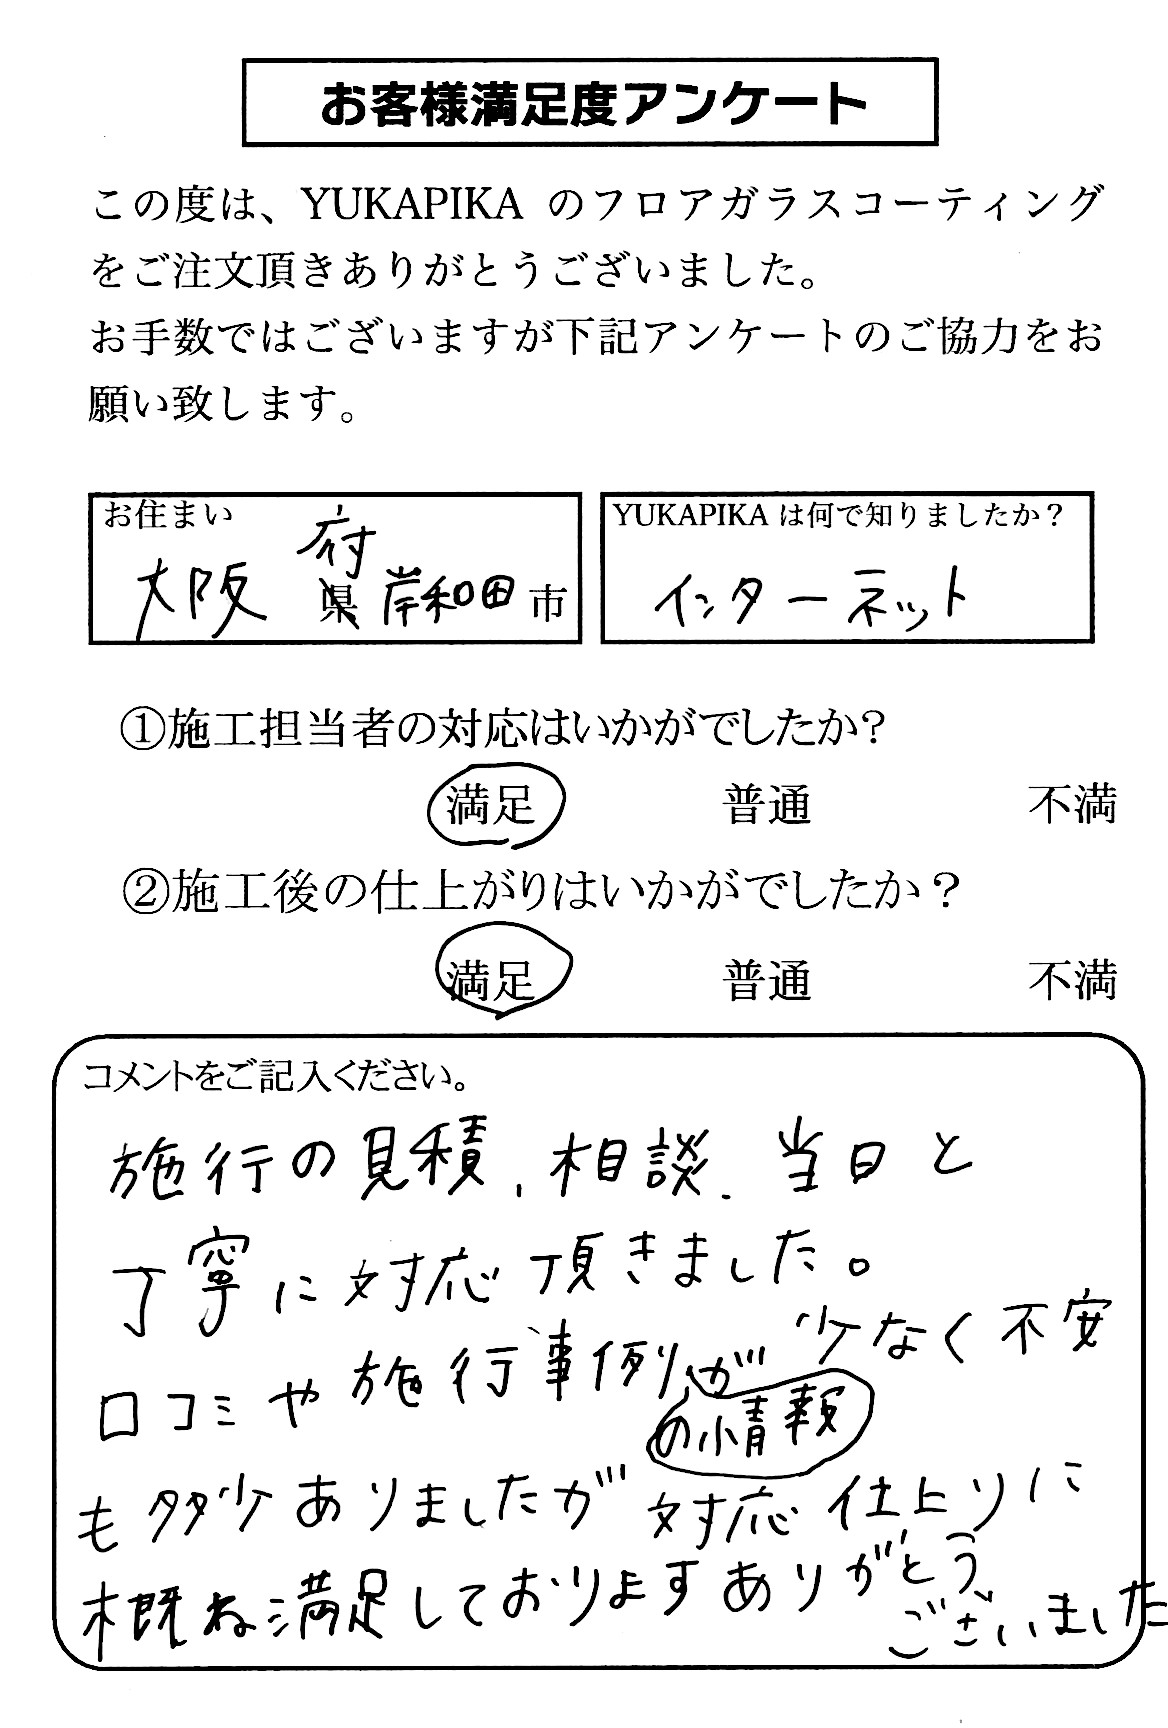 お客様満足度アンケート
この度は、YUKAPIKA のフロアガラスコーティング
をご注文頂きありがとうございました。
お手数ではございますが下記アンケートのご協力をお
願い致します。
お住まい
大阪 府 県 岸和田 市
YUKAPIKA は何で知りましたか？
インターネット
①施工担当者の対応はいかがでしたか?
満足 普通 不満
②施工後の仕上がりはいかがでしたか？
満足 普通 不満
コメントをご記入ください。
施行の見積、相談、当日と
丁寧に対応頂きました。
口コミや施行事例の情報が少なく不安
も多少ありましたが対応仕上りに
概ね満足しておりますありがとう
ございました